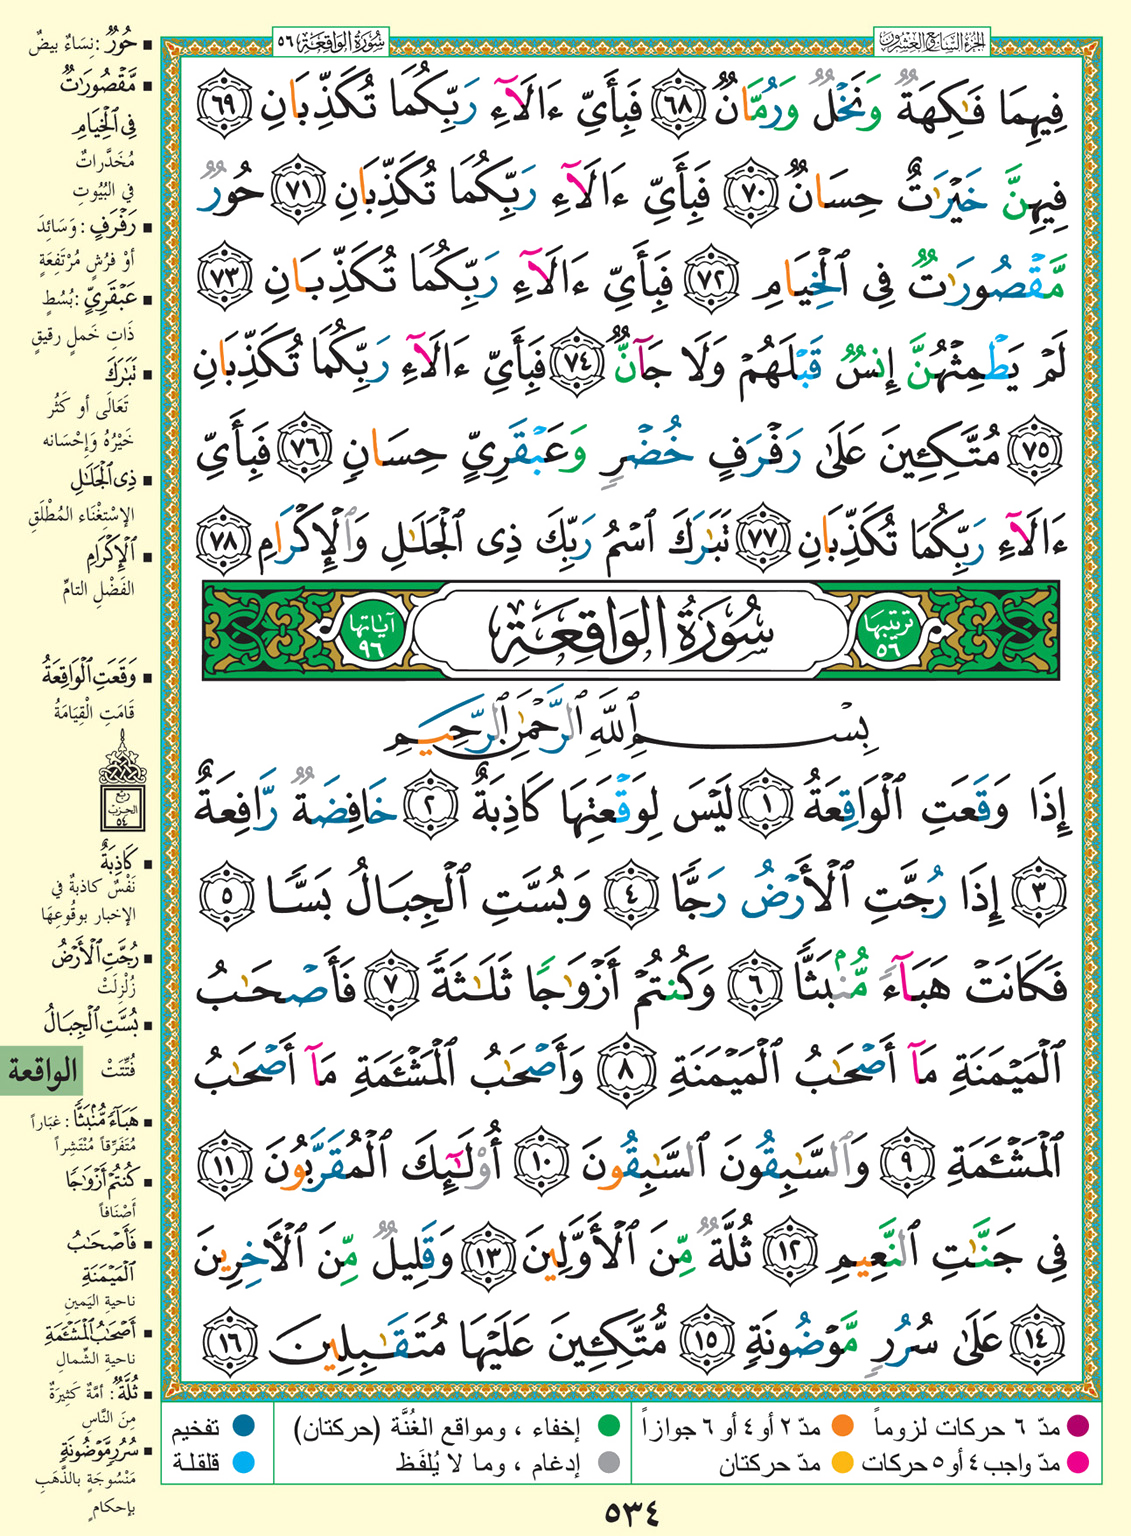 الجزء السابع والعشرون
سورة الواقعة ٥٦
فِيهِمَا فَـٰكِهَةٌ وَنَخْلٌ وَرُمَّانٌ ٦٨ فَبِأَىِّ ءَالَآءِ رَبِّكُمَا تُكَذِّبَانِ ٦٩
فِيهِنَّ خَيْرَٰتٌ حِسَانٌ ٧٠ فَبِأَىِّ ءَالَآءِ رَبِّكُمَا تُكَذِّبَانِ ٧١ حُورٌ
مَّقْصُورَٰتٌ فِى ٱلْخِيَامِ ٧٢ فَبِأَىِّ ءَالَآءِ رَبِّكُمَا تُكَذِّبَانِ ٧٣
لَمْ يَطْمِثْهُنَّ إِنسٌ قَبْلَهُمْ وَلَا جَآنٌّ ٧٤ فَبِأَىِّ ءَالَآءِ رَبِّكُمَا تُكَذِّبَانِ
٧٥ مُتَّكِـِٔينَ عَلَىٰ رَفْرَفٍ خُضْرٍ وَعَبْقَرِىٍّ حِسَانٍ ٧٦ فَبِأَىِّ
ءَالَآءِ رَبِّكُمَا تُكَذِّبَانِ ٧٧ تَبَـٰرَكَ ٱسْمُ رَبِّكَ ذِى ٱلْجَلَـٰلِ وَٱلْإِكْرَامِ ٧٨
ترتيبها ٥٦
سُورَةُ الوَاقِعَةِ
آياتها ٩٦
بِسْمِ ٱللَّهِ ٱلرَّحْمَـٰنِ ٱلرَّحِيمِ
إِذَا وَقَعَتِ ٱلْوَاقِعَةُ ١ لَيْسَ لِوَقْعَتِهَا كَاذِبَةٌ ٢ خَافِضَةٌ رَّافِعَةٌ
٣ إِذَا رُجَّتِ ٱلْأَرْضُ رَجًّا ٤ وَبُسَّتِ ٱلْجِبَالُ بَسًّا ٥
فَكَانَتْ هَبَآءً مُّنۢبَثًّا ٦ وَكُنتُمْ أَزْوَٰجًا ثَلَـٰثَةً ٧ فَأَصْحَـٰبُ
ٱلْمَيْمَنَةِ مَآ أَصْحَـٰبُ ٱلْمَيْمَنَةِ ٨ وَأَصْحَـٰبُ ٱلْمَشْـَٔمَةِ مَآ أَصْحَـٰبُ
ٱلْمَشْـَٔمَةِ ٩ وَٱلسَّـٰبِقُونَ ٱلسَّـٰبِقُونَ ١٠ أُو۟لَـٰٓئِكَ ٱلْمُقَرَّبُونَ ١١
فِى جَنَّـٰتِ ٱلنَّعِيمِ ١٢ ثُلَّةٌ مِّنَ ٱلْأَوَّلِينَ ١٣ وَقَلِيلٌ مِّنَ ٱلْـَٔاخِرِينَ
١٤ عَلَىٰ سُرُرٍ مَّوْضُونَةٍ ١٥ مُّتَّكِـِٔينَ عَلَيْهَا مُتَقَـٰبِلِينَ ١٦
حُورٌ : نِسَاءٌ بيضٌ
مَّقْصُورَٰتٌ
فِى ٱلْخِيَامِ
مُخَدَّراتٌ
في البُيُوتِ
رَفْرَفٍ : وَسَائِدَ
أوْ فُرُشٍ مُرْتَفِعَةٍ
عَبْقَرِىٍّ : بُسُطٍ
ذَاتِ خَملٍ رقيقٍ
تَبَـٰرَكَ
تَعَالَى أو كَثُر
خَيْرُهُ وَإحْسَانه
ذِى ٱلْجَلَـٰلِ
الإسْتِغْنَاء المُطْلَقِ
ٱلْإِكْرَامِ
الفَضْلِ التامِّ
وَقَعَتِ ٱلْوَاقِعَةُ
قَامَتِ الْقِيَامَةُ
ربع
الحزب
٥٤
كَاذِبَةٌ
نَفْسٌ كاذبةٌ في
الإخبار بوقُوعِهَا
رُجَّتِ ٱلْأَرْضُ
زُلْزِلَتْ
بُسَّتِ ٱلْجِبَالُ
فُتِّتَتْ
الواقعة
هَبَآءً مُّنۢبَثًّا : غبَاراً
مُتَفَرِّقاً مُنْتَشِراً
كُنتُمْ أَزْوَٰجًا
أصْنَافاً
فَأَصْحَـٰبُ
ٱلْمَيْمَنَةِ
ناحيةِ اليَمينِ
أَصْحَـٰبُ ٱلْمَشْـَٔمَةِ
ناحيةِ الشِّمالِ
ثُلَّةٌ : أمَّةٌ كَثِيرَةٌ
مِنَ النَّاسِ
سُرُرٍ مَّوْضُونَةٍ
مَنْسُوجَةٍ بالذَّهَبِ
بإحكامٍ
مدّ ٦ حركات لزوماً
مدّ ٢ أو ٤ أو ٦ جوازاً
إخفاء ، ومواقع الغُنَّة (حركتان)
تفخيم
مدّ واجب ٤ أو ٥ حركات
مدّ حركتان
إدغام ، وما لا يُلفَظ
قلقلة
٥٣٤